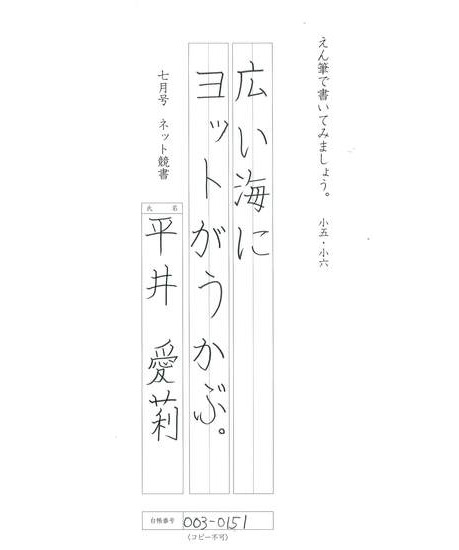 えん筆で書いてみましょう。　小五・小六
広い海に
ヨットがうかぶ。
七月号　ネット競書
氏名
平井　愛莉
台帳番号 003-0151
(コピー不可)